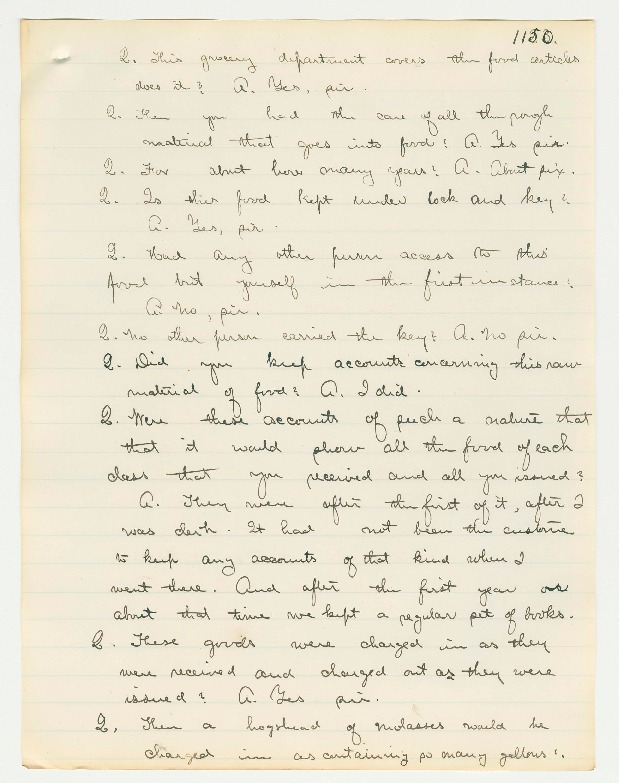 1150.
Q. This grocery department covers the food articles
does it? A. Yes, sir.
Q. Then you had the care of all the rough
material that goes into food? A. Yes sir.
Q. For about how many years? A. About six.
Q. Is this food kept under lock and key?
A. Yes, sir.
Q. Had any other person access to this
food but yourself in the first instance?
A. No, sir.
Q. No other person carried the key? A. No sir.
Q. Did you keep accounts concerning this raw
material of food? A. I did.
Q. Were these accounts of such a nature that
that it would show all the food of each
class that you received and all you issued?
A. They were after the first of it, after I
was clerk. It had not been the custome
to keep any accounts of that kind when I
went there. And after the first year or
about that time we kept a regular set of books.
Q. These goods were charged in as they
were received and charged out as they were
issued? A. Yes sir.
Q. Then a hogshead of molasses would be
charged in as containing so many gallons?.